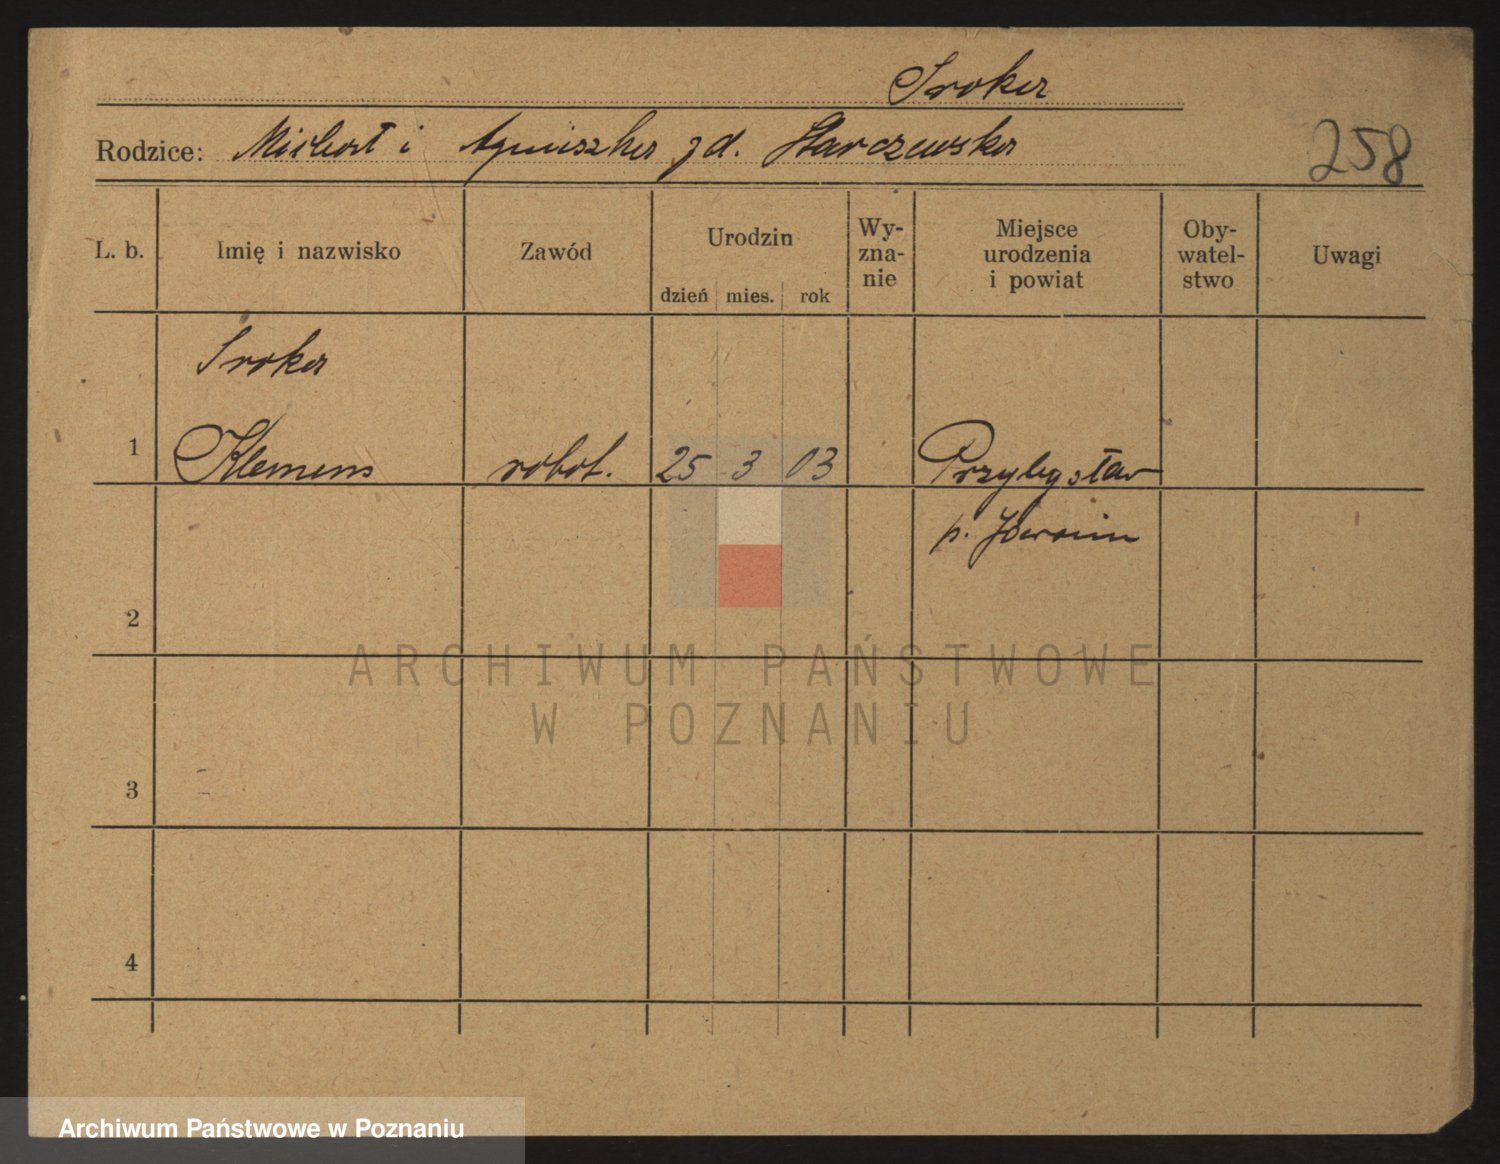 Sroka
Rodzice: Michał i Agnieszka zd. Starczewska
258
L. b. Imię i nazwisko Zawód Urodzin Wy- zna- nie Miejsce urodzenia i powiat Oby- watel- stwo Uwagi
dzień mies. rok
Sroka
1 Klemens robot. 25 3 03 Przybysław
p. Jarocin
2
ARCHIWUM PAŃSTWOWE
W POZNANIU
3
4
Archiwum Państwowe w Poznaniu